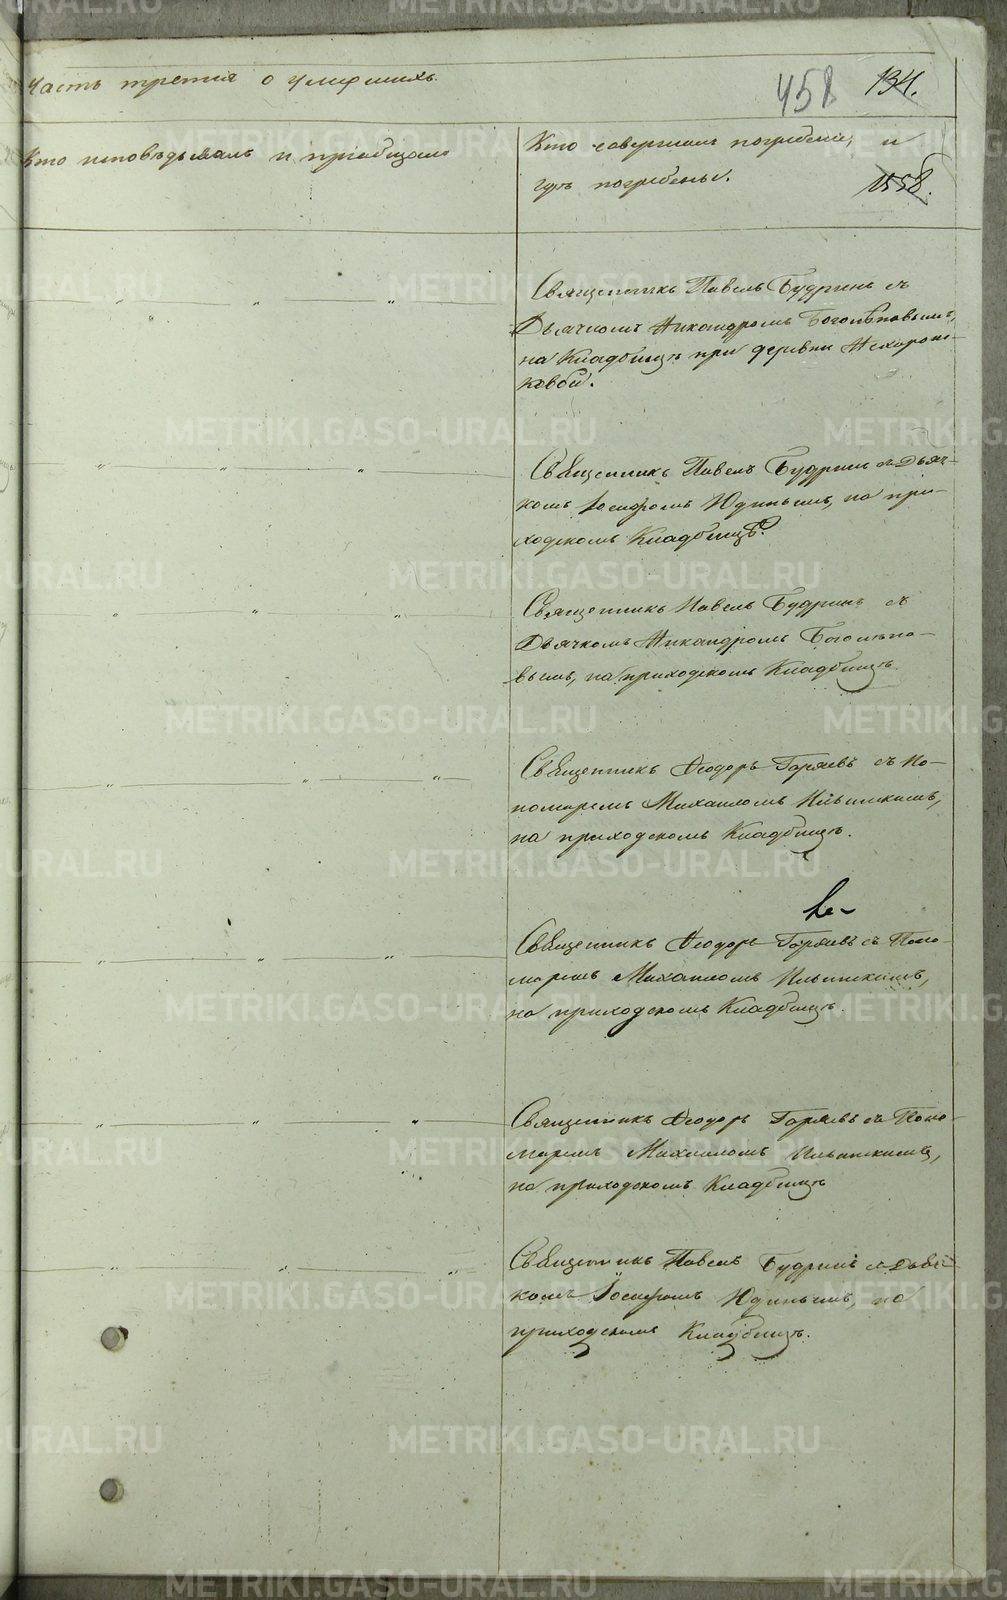 Часть третія о умершихъ.
458 134.
Кто исповѣдывалъ и пріобщалъ
Кто совершалъ погребеніе, и
гдѣ погребены.
1558.
Священникъ Павелъ Будринъ съ
Дьячкомъ Никандромъ Боголѣповымъ,
на Кладбищѣ при деревни
ковой.
Священникъ Павелъ Будринъ съ Дьяч-
комъ Іосифомъ Юдинымъ, на при-
ходскомъ Кладбищѣ.
Священникъ Павелъ Будринъ съ
Дьячкомъ Никандромъ Боголѣпо-
вымъ, на приходскомъ Кладбищѣ.
Священникъ Ѳеодоръ Горяевъ съ По-
номаремъ Михаиломъ Ильинскимъ,
на приходскомъ Кладбищѣ.
Священникъ Ѳеодоръ Горяевъ съ Поно-
маремъ Михаиломъ Ильинскимъ,
на приходскомъ Кладбищѣ.
Священникъ Ѳеодоръ Горяевъ съ Поно-
маремъ Михаиломъ Ильинскимъ,
на приходскомъ Кладбищѣ
Священникъ Павелъ Будринъ съ Дьяч-
комъ Іосифомъ Юдинымъ, на
приходскомъ Кладбищѣ.
METRIKI.GASO-URAL.RU